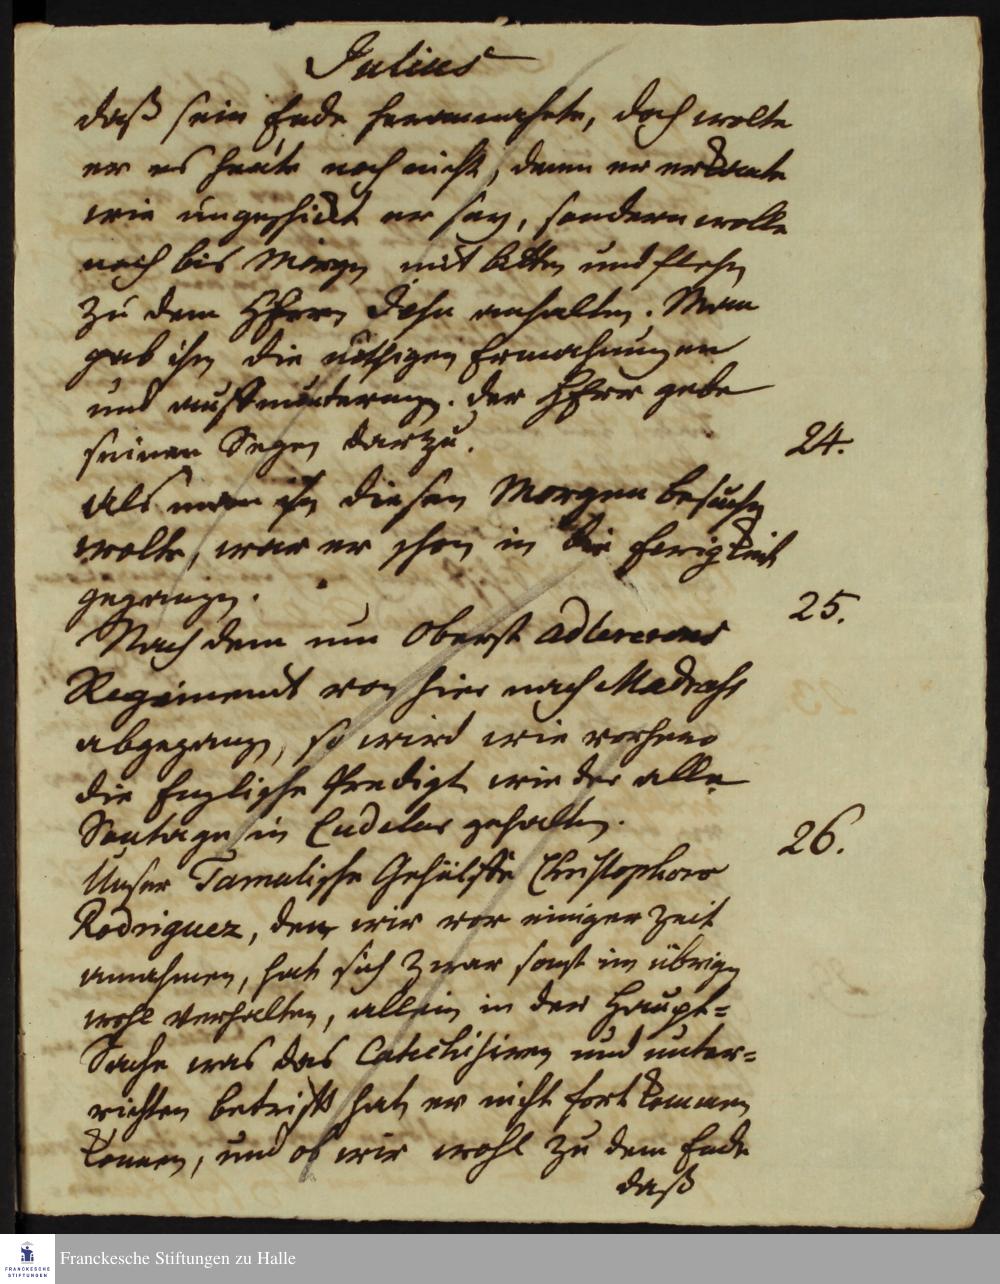 Julius
daß sein Ende herannahete, doch wolte
er es heute noch nicht, denn er erkante
wie ungeschickt er sey, sondern wolle
noch bis Morgen mit bitten und flehen
zu dem HErrn Jesu anhalten. Man
gab ihm die nöthigen Ermahnungen
und auffmunterungen. der HErr gebe
seinen Segen darzu.
24.
Als man ihn diesen Morgen besuchen
wolte, war er schon in die Ewigkeit
gegangen.
25.
Nach dem nun Oberst Adlercrons
Regiment von hier nach Madrass
abgegangen, so wird wie vorhero
die Englische Predigt wieder alle
Sontage in Cudelur gehalten.
26.
Unser Tamulische Gehülffe Christophoro
Rodriguez, den wir vor einiger Zeit
annahmen, hat sich zwar sonst im übrigen
wohl verhalten, allein in der Haupt=
Sache was das Catechisiren und unter=
richten betrifft hat er nicht fortkommen
können, und ob wir wohl zu dem Ende
daß
Franckesche Stiftungen zu Halle
FRANCKESCHE
STIFTUNGEN